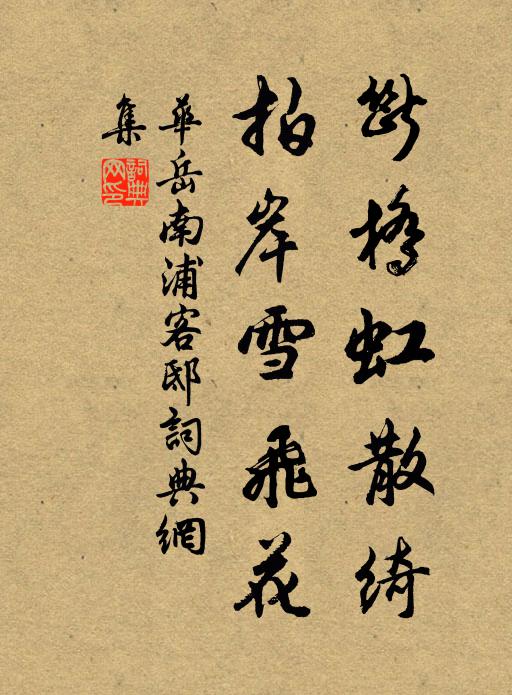 斷橋虹散綺
拍岸雪飛花
華岳南浦客邸詞典網
集
詞典网印